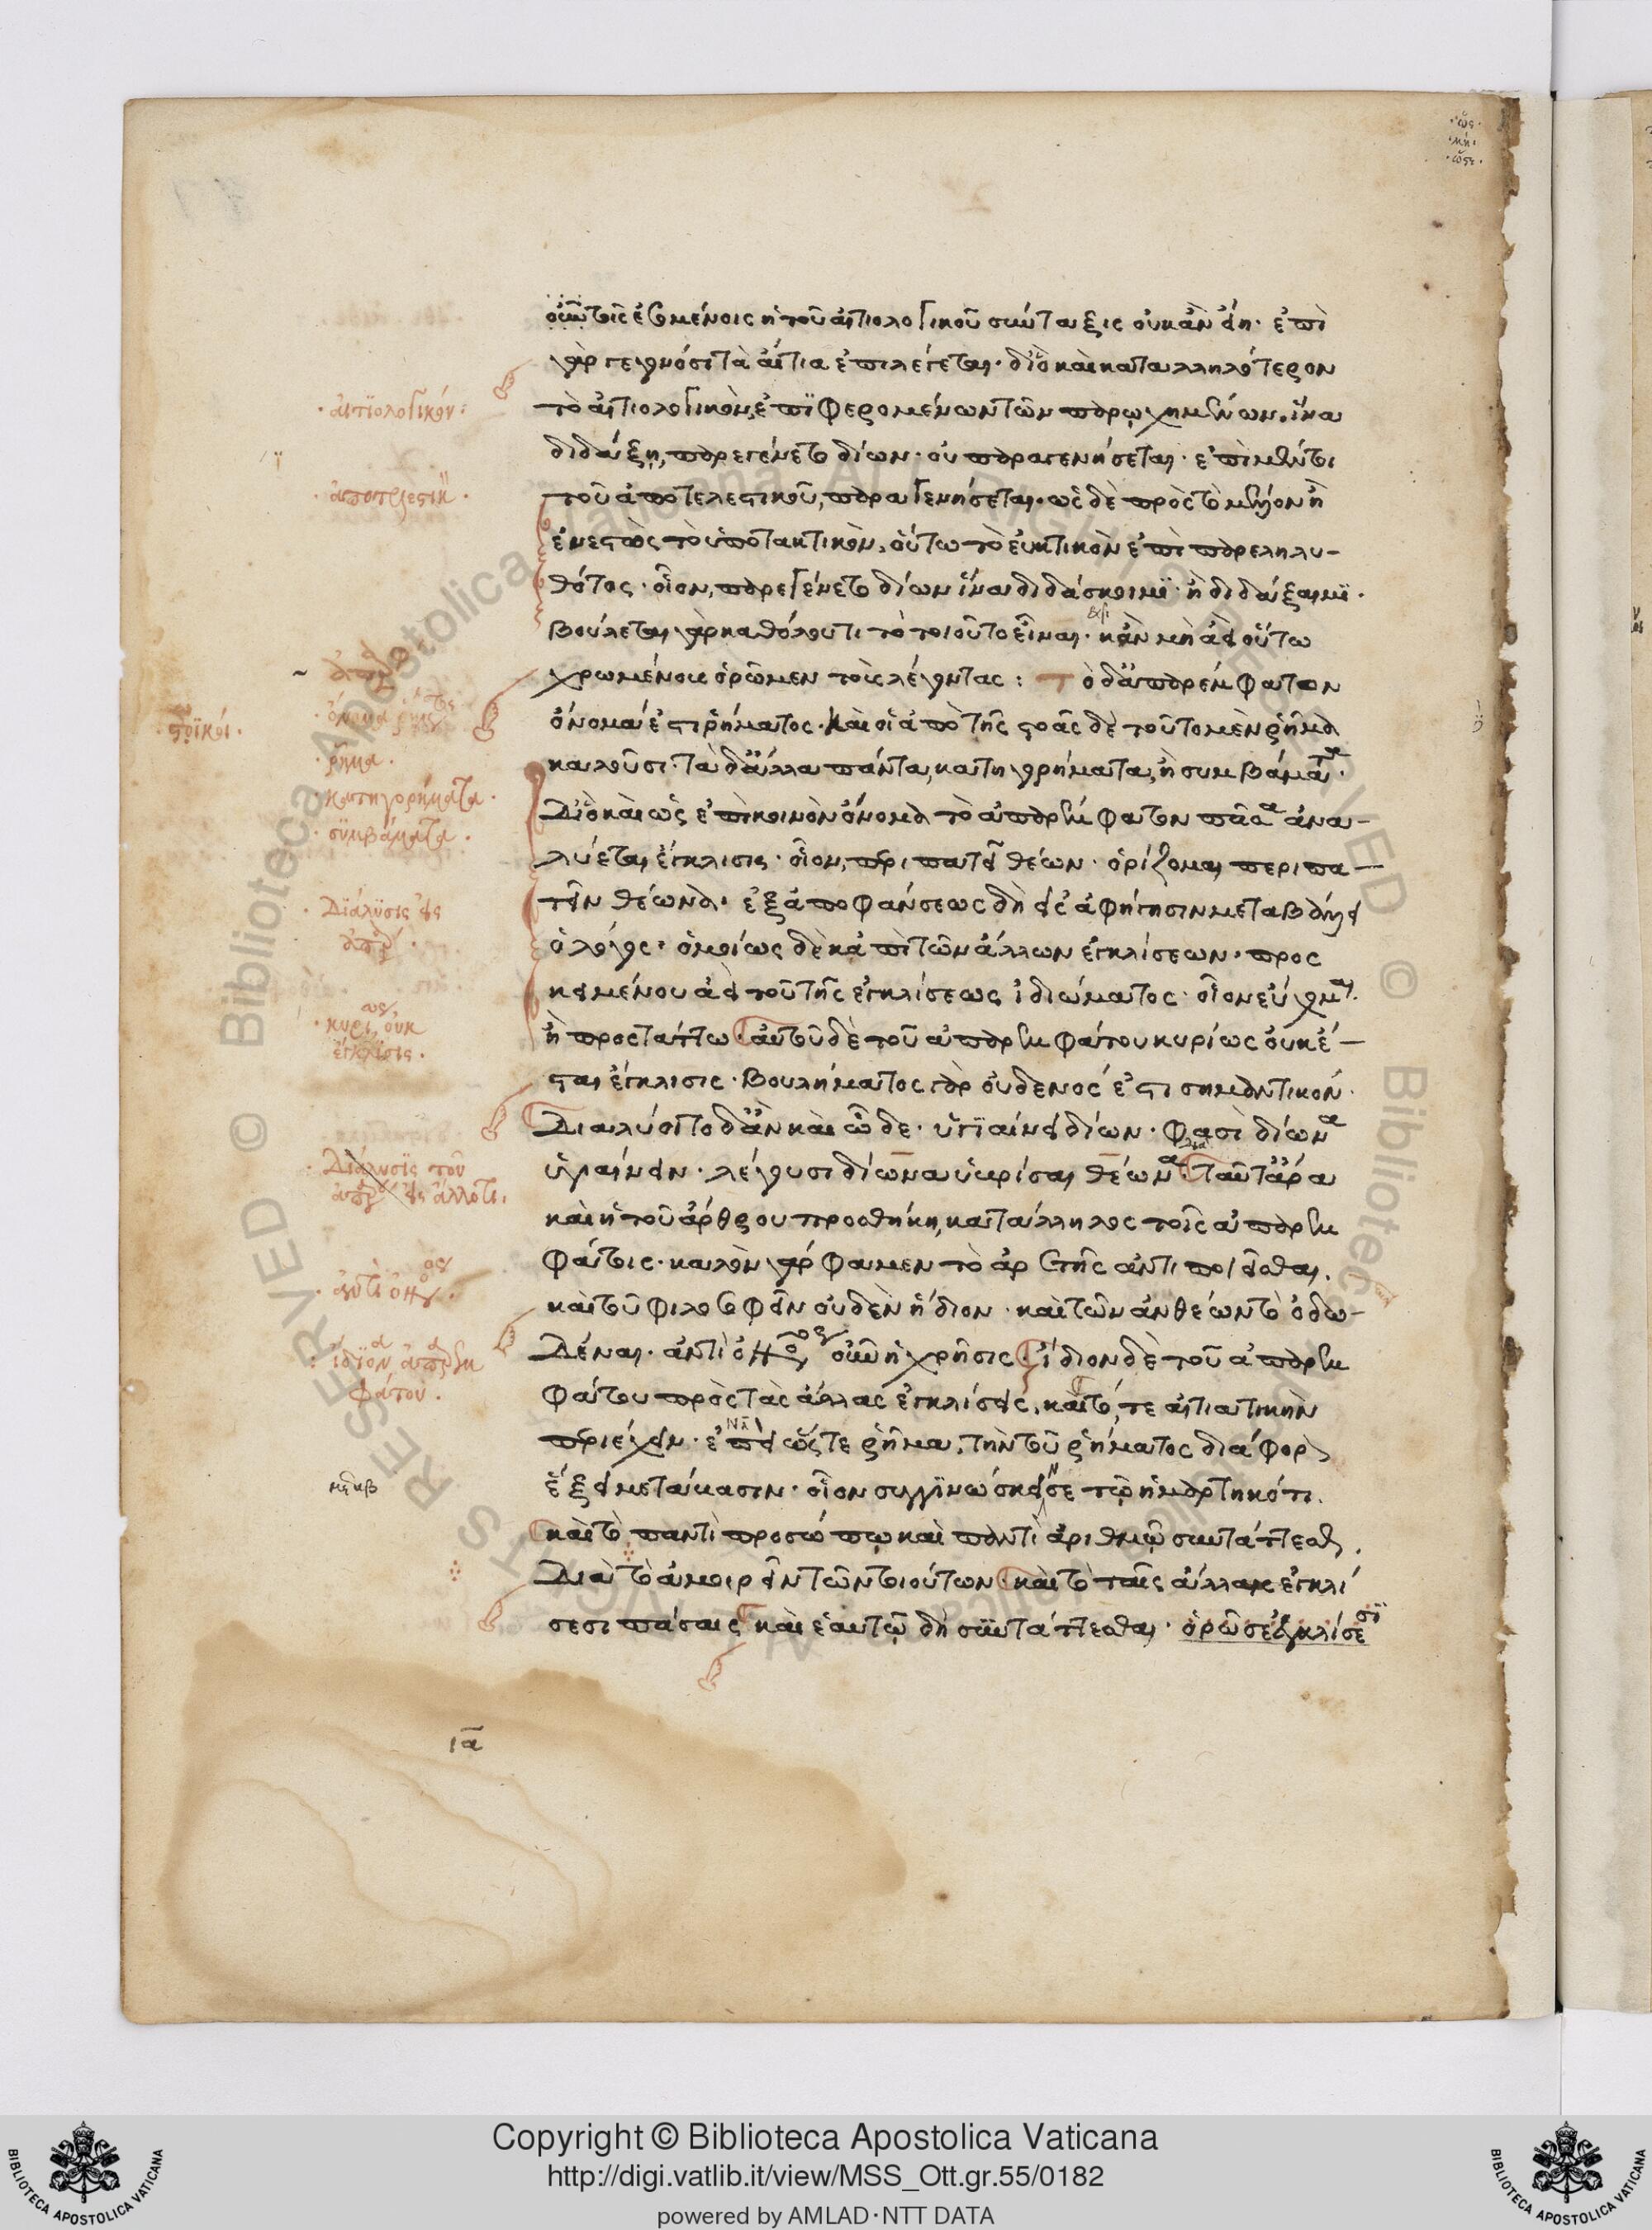 οὖν τοῖς ἐσομένοις ἡ τοῦ αἰτιολογικοῦ σύνταξις οὐκ ἂν εἴη· ἐπὶ
γὰρ γεγονόσι τὰ αἴτια ἐπιλέγεται· διὸ καὶ καταλληλότερον
τὸ αἰτιολογικὸν, ἐπϊφερομένων τῶν παρῳχημένων. ἵνα
διδάξῃ, παρεγένετο δίων· οὐ παραγενήσεται· ἐπὶ μέντοι
τοῦ ἀποτελεστικοῦ, παραγενήσεται. ὡς δὲ πρὸς τὸ μέλλον ἢ
ἐνεστὼς τὸ ὑποτακτικὸν, οὕτω τὸ εὐκτικὸν ἐπὶ παρεληλυ-
θότος· οἷον, παρεγένετο δίων ἵνα διδάσκοιμϊ· ἢ διδάξαιμϊ.
βούλεται γὰρ καθόλου τι τὸ τοιοῦτο εἶναι. κἂν μὴ ἀεὶ οὕτω
χρωμένους ὁρῶμεν τοὺς λέγοντας: Τὸ δ' ἀπαρέμφατον
ὄνομα ἐστι ῥήματος. καὶ οἱ ἀπὸ τῆς στοᾶς δὲ τοῦτο μὲν ῥῆμα
καλοῦσι· τὰ δ' ἄλλα πάντα, κατηγορήματα, ἢ συμβάματα.
Διὸ καὶ ὡς ἐπὶ κοινὸν ὄνομα τὸ ἀπαρέμφατον πᾶσα ἀνα-
λύεται ἔγκλισις· οἷον, περιπατεῖ θέων· ὁρίζομαι περιπα-
τεῖν θέωνα. ἐξ ἀποφάνσεως δὴ εἰς ἀφήγησιν μεταβάλλει
ὁ λόγος· ὁμοίως δὲ κἀπὶ τῶν ἄλλων ἐγκλίσεων. προς
κειμένου ἀεὶ τοῦ τῆς ἐγκλίσεως ἰδιώματος· οἷον εὔχομαι
ἢ προστάττω. αὐτοῦ δὲ τοῦ ἀπαρεμφάτου κυρίως οὐκ ἔ-
σται ἔγκλισις. βουλήματος γὰρ οὐδενός ἐστι σημαντικόν.
Διαλύοιτο δ' ἂν καὶ ὧδε· ὑγϊαίνει δίων· φασὶ δίωνα
ὑγιαίνειν· λέγουσι δίωνα ὑβρίσαι θέωνα. Ταῦτ' ἄρα
καὶ ἡ τοῦ ἄρθρου προσθήκη, κατάλληλος τοῖς ἀπαρεμ
φάτοις· καλὸν γάρ φαμεν τὸ ἀρετῆς ἀντιποιεῖσθαι.
καὶ τοῦ φιλοσοφεῖν οὐδὲν ἥδιον· καὶ τῶν ἀνθέων τὸ ὀδω-
δέναι. ἀντὶ ὀνόματος οὖν ἡ χρῆσις ἴδιον δὲ τοῦ ἀπαρεμ
φάτου πρὸς τὰς ἄλλας ἐγκλίσεις, καὶ τό, τε αἰτιατικὴν
περιέχειν.
ἕξει μετάβασιν. οἷον συγγϊνώσκειν σε τῷ ἡμαρτηκότι.
καὶ τὸ παντὶ προσώπῳ καὶ παντὶ ἀριθμῷ συντάττεσθαι.
Διὰ τὸ ἀμοιρεῖν τῶν τοιούτων καὶ τὸ ταῖς ἄλλαις ἐγκλί
σεσι πάσαις καὶ ἑαυτῷ δὴ συντάττεσθαι. ὁρῶσ ἐγκλίσεσϊ
· αἰτϊολογικόν:
· ἀποτελεστικ
στωϊκοί.
· ῥῆμα.
· κατηγορήματα.
· σϋμβάματα.
· Διάλϋσις εἰς
· κυρίως, οὐκ
ἔγκλισις.
· Διάλυσϊς τοῦ
ἀπαρ εἰς ἄλλο τι.
· ἀντὶ ὀνόματος.
: ἴδϊον ἀπαρεμ
φάτου.
ια
Copyright © Biblioteca Apostolica Vaticana
http://digi.vatlib.it/view/MSS_Ott.gr.55/0182
powered by AMLAD·NTT DATA